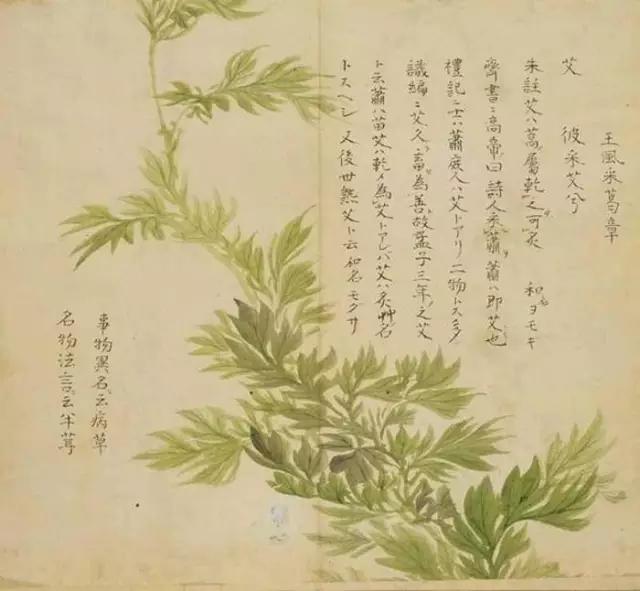 王風采葛章
艾 彼采艾兮
朱註艾ハ蒿屬乾之可灸 和名ヨモキ
齊書ニ高帝曰詩人采蕭蕭ハ即艾也
禮記ニ士ハ蕭庶人ハ艾トアリ二物トス多
識編ニ艾久畜為善故孟子三年之艾
ト云蕭ハ苗艾ハ乾〆為艾トアレバ艾ハ灸艸名
トスヘシ 又後世熟艾ト云 和名モグサ
事物異名云病草
名物法言云半